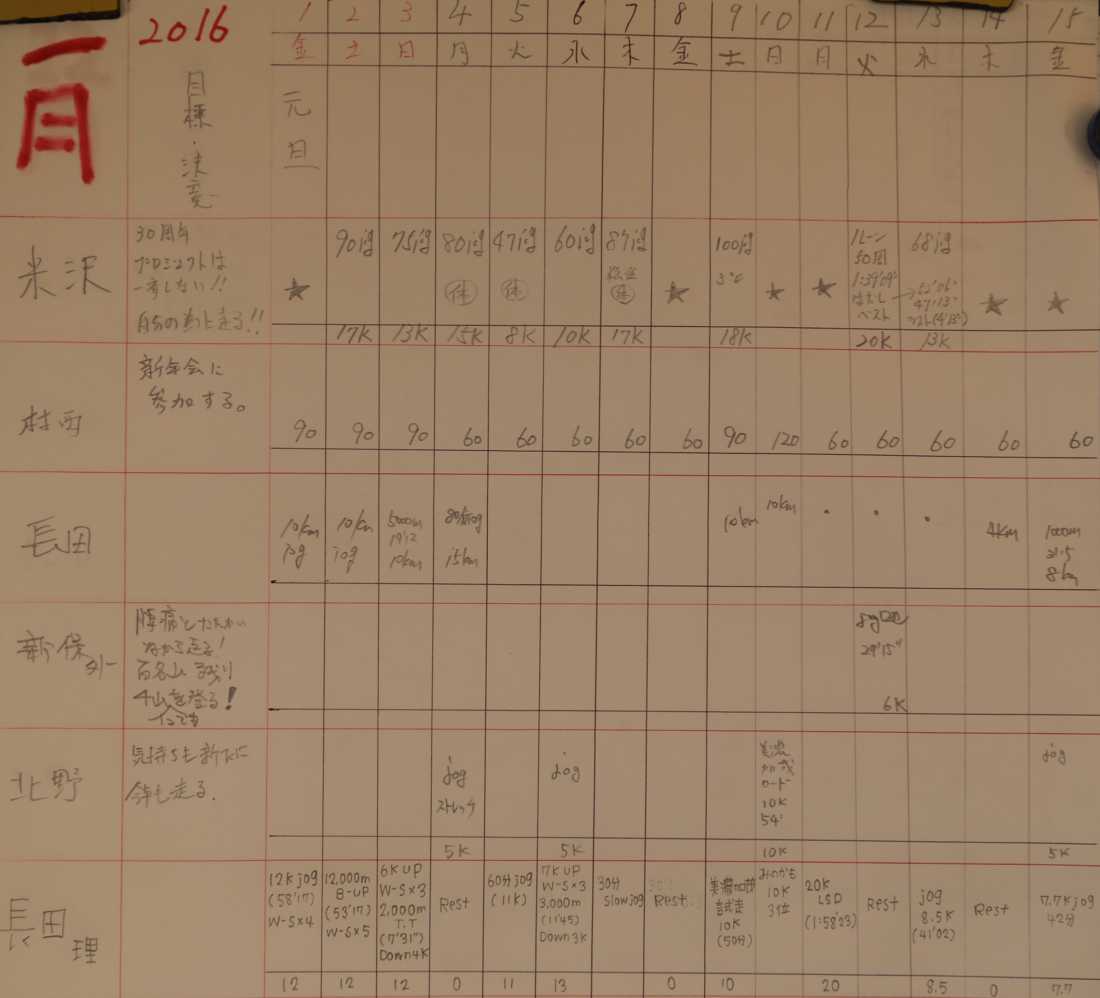 一月
2016
目標・決意
1 2 3 4 5 6 7 8 9 10 11 12 13 14 15
金 土 日 月 火 水 木 金 土 日 月 火 水 木 金
元旦
米沢
30周年
プロジェクトは
自分の為に走る!!
★ 90jog 75jog 80jog 47jog 60jog 87jog ★ 100jog ★ ★ 1レーン 68jog ★ ★
休 休 休 3℃ 50周
1:39'09"
ベスト
17K 13K 15K 8K 10K 17K 18K 20K 13K
村西
新年会に
参加する。
90 90 90 60 60 60 60 60 90 120 60 60 60 60 60
長田
10km 10km 5000m 80分jog 10km 10km ・ ・ ・ 4km 1000m
jog jog 19'12 15km 21.5
10km 8km
新保
腰痛とたたかい
ながら走る!
百名山 残り
4山を登る!
29'15"
6K
北野
気持ちも新たに
今年も走る.
jog jog 美濃 jog
ストレッチ 加茂
ロード
10K
54'
5K 5K 10K 5K
長田理
12K jog 12,000m 6K UP Rest 60分jog 7K UP 30分 Rest. 美濃加茂 みのかも 20K Rest jog Rest 7.7K jog
(58'17) B-UP W-S×3 (11K) W-S×3 slow jog 試走 10K LSD 8.5K 42分
W-S×4 (53'17) 2,000m 3,000m 10K 3位 (1:58'23) (41'02)
W-S×5 T.T (11'45) (50分)
(7'31") Down3K
Down4K
12 12 12 0 11 13 0 10 20 8.5 0 7.7